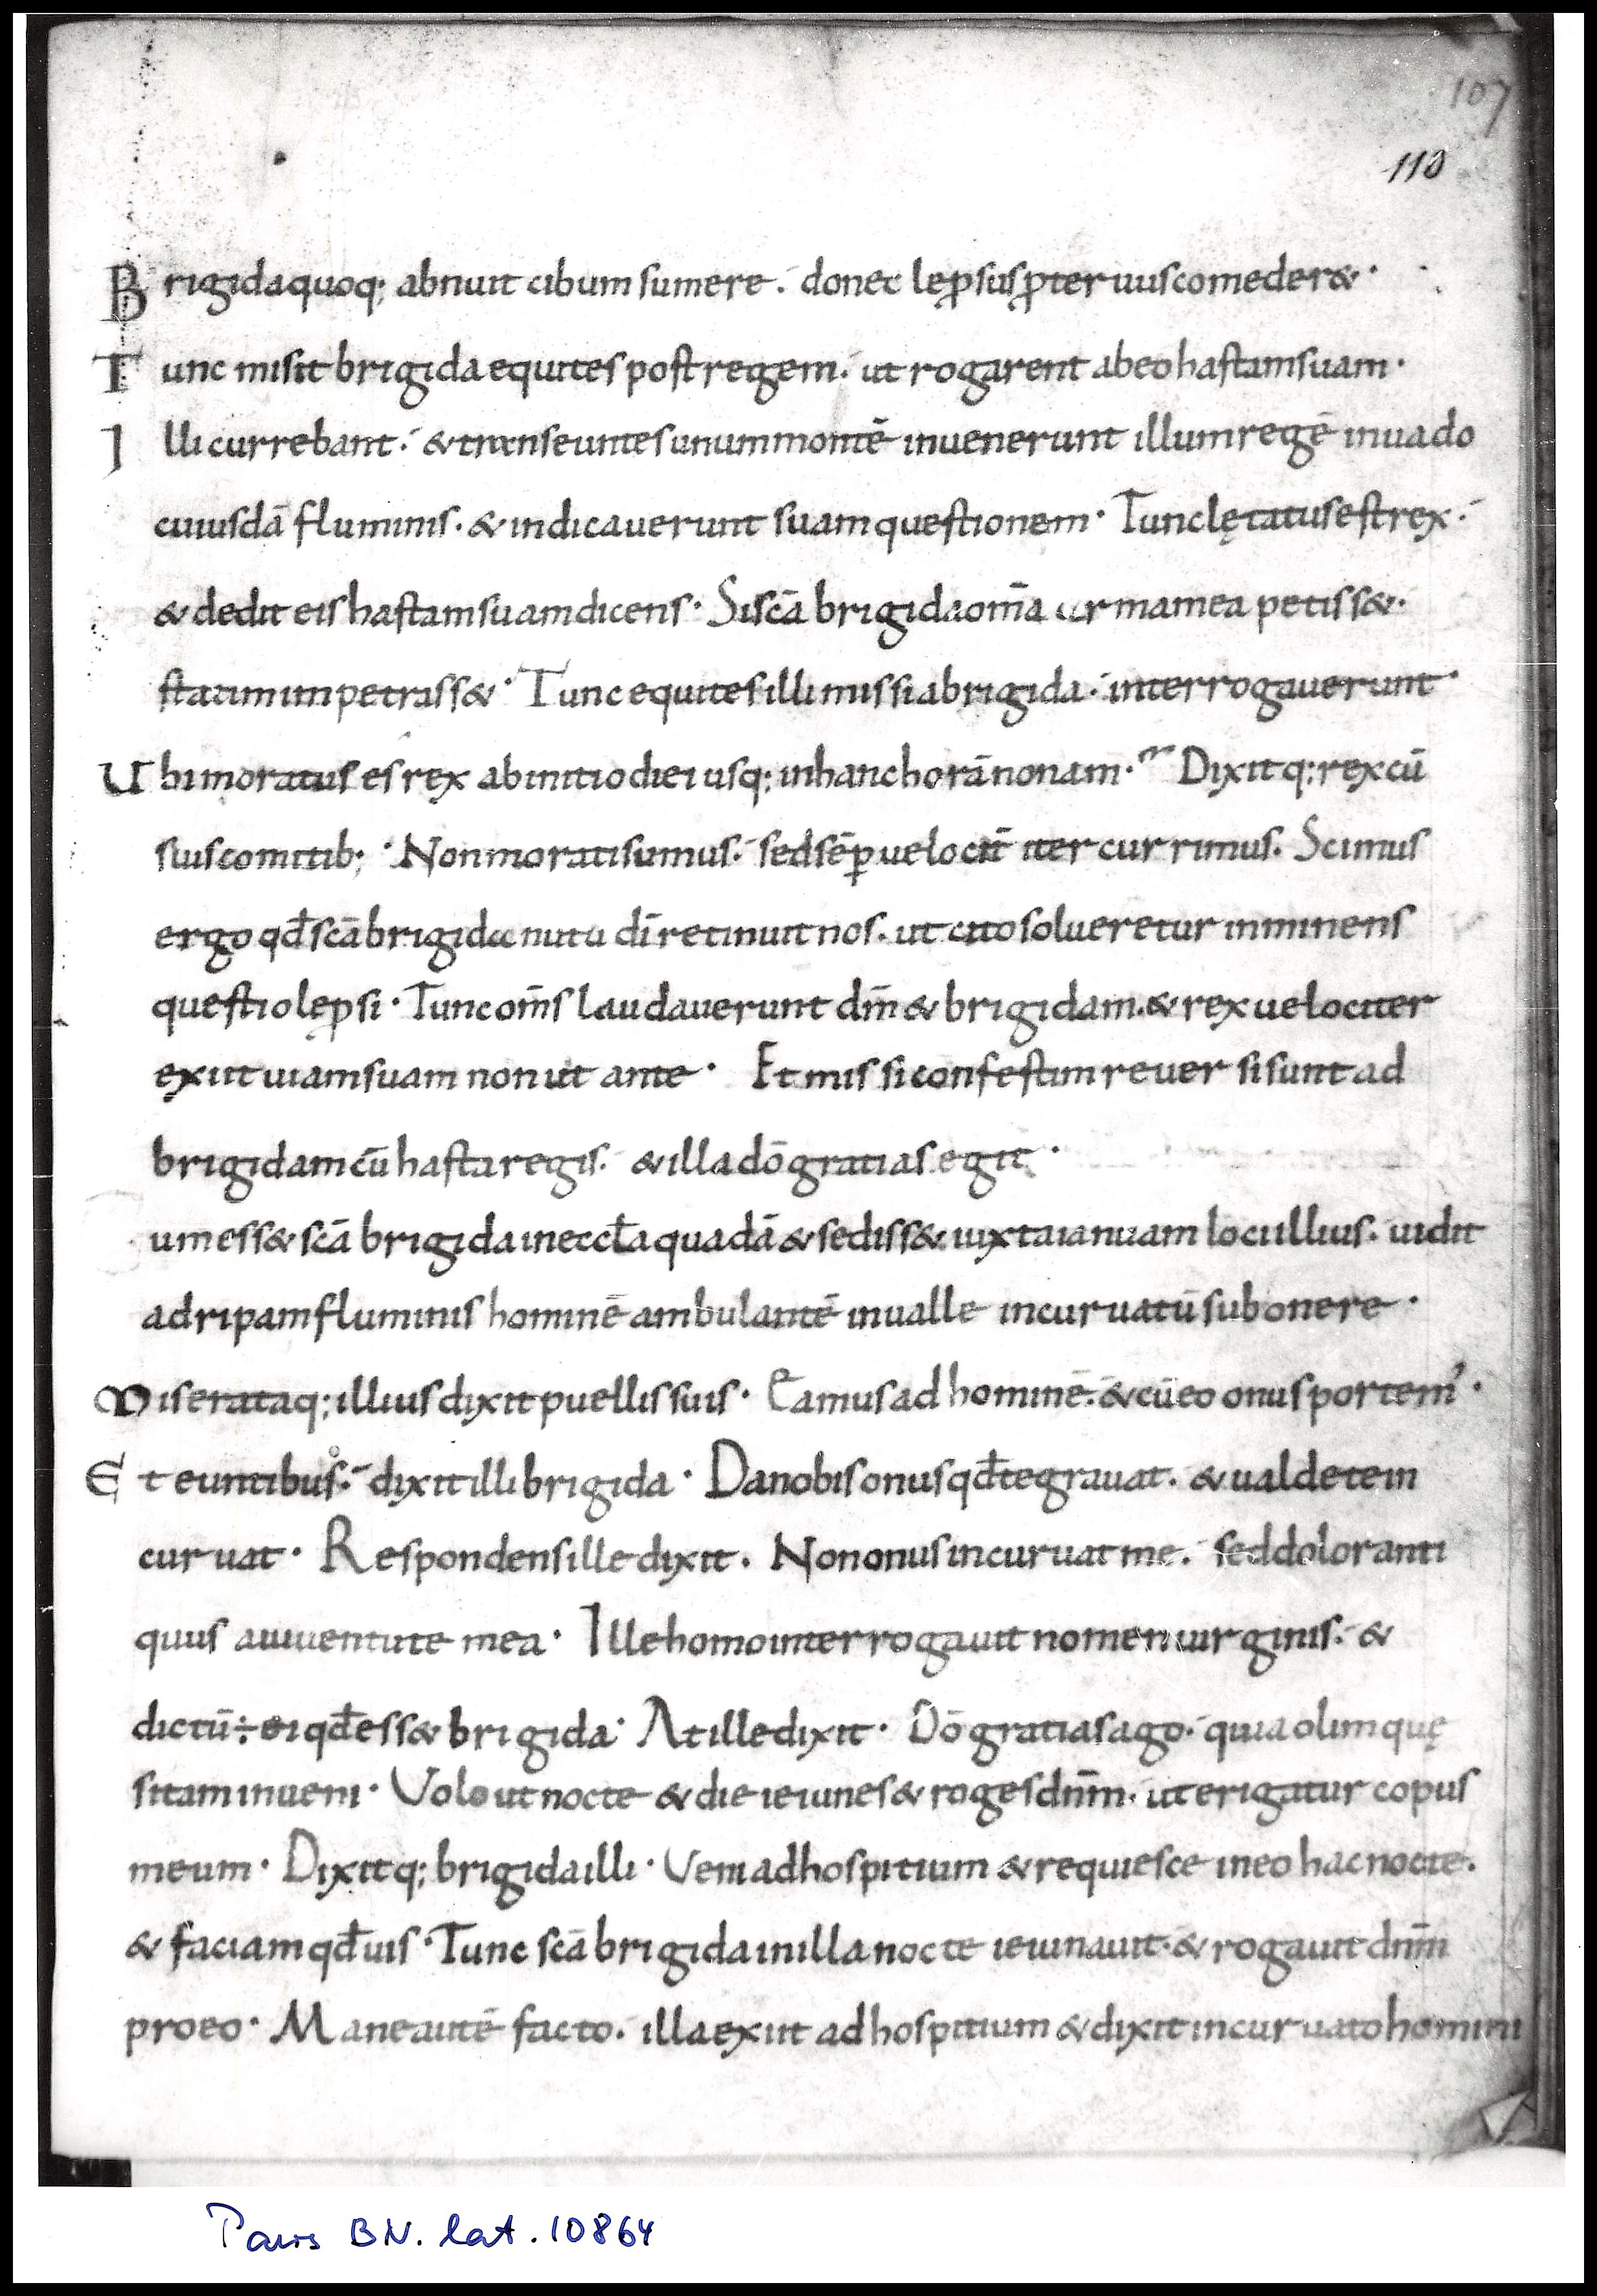 107
110
Brigida quoq; abnuit cibum sumere. donec lep̄sus p̄teruus comeder&·
Tunc misit brigida equites post regem. ut rogarent ab eo hastam suam·
Illi currebant. & transeuntes unum montē inuenerunt illum regē in uado
cuiusdā fluminis. & indicauerunt suam questionem· Tunc lętatus est rex.
& dedit eis hastam suam dicens· Si sc̄a brigida om̄a arma mea petiss&.
statim impetrass&· Tunc equites illi missi a brigida. interrogauerunt·
Ubi moratus es rex ab initio diei usq; in hanc horā nonam· Dixitq; rex cū
suis comitib; · Non morati sumus. sed sēp uelocit̄ iter currimus. Scimus
ergo qđ sc̄a brigida nutu dī retinuit nos. ut cito solueretur inminens
questio lepsi· Tunc om̄s laudauerunt dm̄ & brigidam. & rex uelociter
exiit uiam suam non ut ante· Et missi confestim reuersi sunt ad
brigidam cū hasta regis. & illa dō gratias egit·
um ess& sc̄a brigida in eccƚa quadā & sediss& iuxta ianuam loci illius. uidit
ad ripam fluminis hominē ambulantē in ualle incuruatū sub onere·
Miserataq; illius dixit puellis suis· Eamus ad hominē. & cū eo onus portem᾿·
Et euntibus. dixit illi brigida· Da nobis onus qđ te grauat. & ualde te in
curuat· Respondens ille dixit. Non onus incuruat me. sed dolor anti
quus a iuuentute mea· Ille homo interrogauit nomen uirginis. &
dictū ÷ ei qđ ess& brigida· At ille dixit· Dō gratias ago. quia olim quę
sitam inueni· Volo ut nocte & die ieiunes & roges dnm̄. ut erigatur copus
meum· Dixitq; brigida illi· Veni ad hospitium & requiesce in eo hac nocte.
& faciam qđ uis· Tunc sc̄a brigida in illa nocte ieiunauit. & rogauit dnm̄
pro eo· Mane autē facto. illa exiit ad hospitium & dixit incuruato homini
Paris BN. lat. 10864